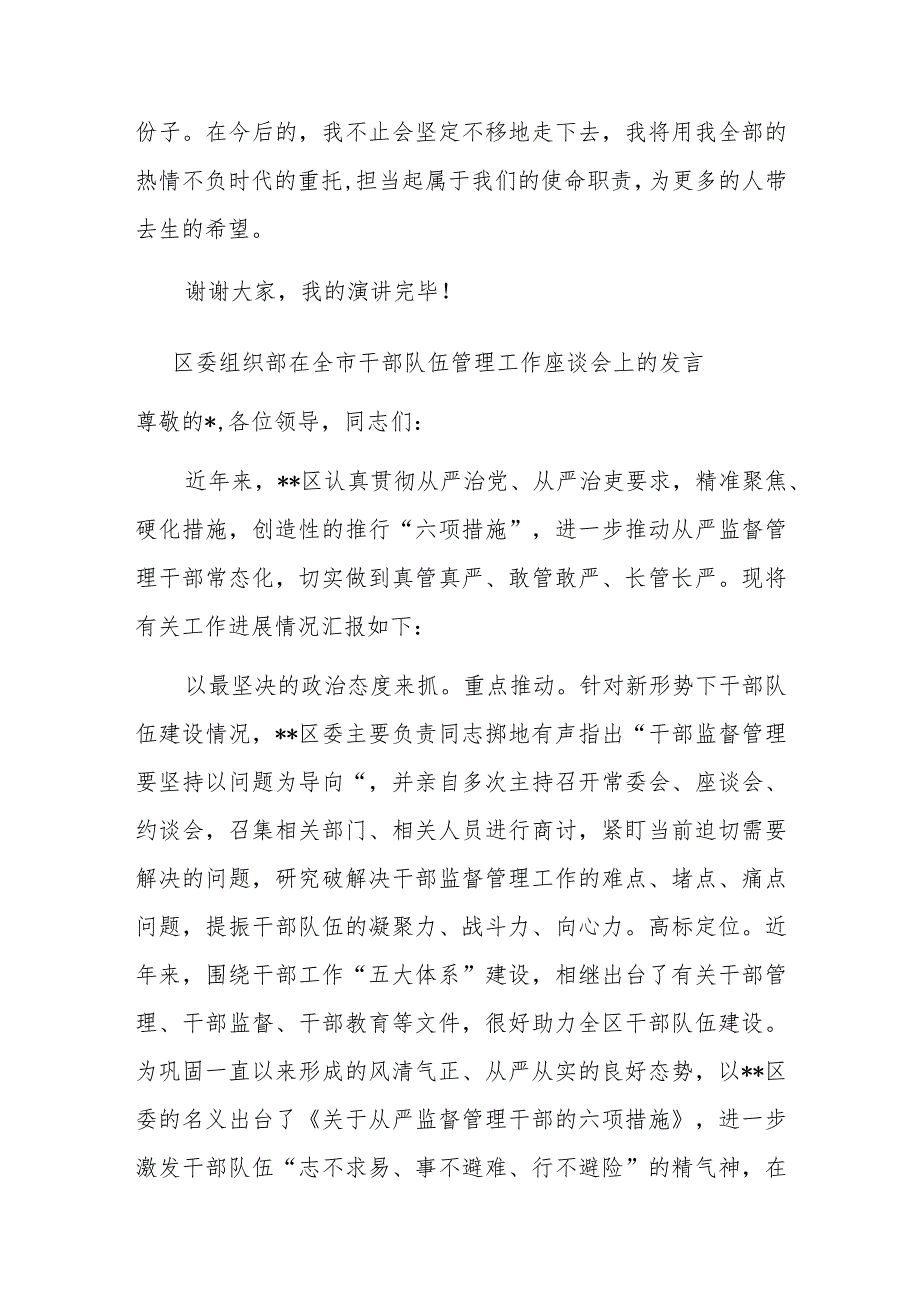 份子。在今后的，我不止会坚定不移地走下去，我将用我全部的
热情不负时代的重托,担当起属于我们的使命职责，为更多的人带
去生的希望。
谢谢大家，我的演讲完毕！
区委组织部在全市干部队伍管理工作座谈会上的发言
尊敬的*,各位领导，同志们：
近年来，**区认真贯彻从严治党、从严治吏要求，精准聚焦、
硬化措施，创造性的推行“六项措施”，进一步推动从严监督管
理干部常态化，切实做到真管真严、敢管敢严、长管长严。现将
有关工作进展情况汇报如下：
以最坚决的政治态度来抓。重点推动。针对新形势下干部队
伍建设情况，**区委主要负责同志掷地有声指出“干部监督管理
要坚持以问题为导向“，并亲自多次主持召开常委会、座谈会、
约谈会，召集相关部门、相关人员进行商讨，紧盯当前迫切需要
解决的问题，研究破解决干部监督管理工作的难点、堵点、痛点
问题，提振干部队伍的凝聚力、战斗力、向心力。高标定位。近
年来，围绕干部工作“五大体系”建设，相继出台了有关干部管
理、干部监督、干部教育等文件，很好助力全区干部队伍建设。
为巩固一直以来形成的风清气正、从严从实的良好态势，以**区
委的名义出台了《关于从严监督管理干部的六项措施》，进一步
激发干部队伍“志不求易、事不避难、行不避险”的精气神，在